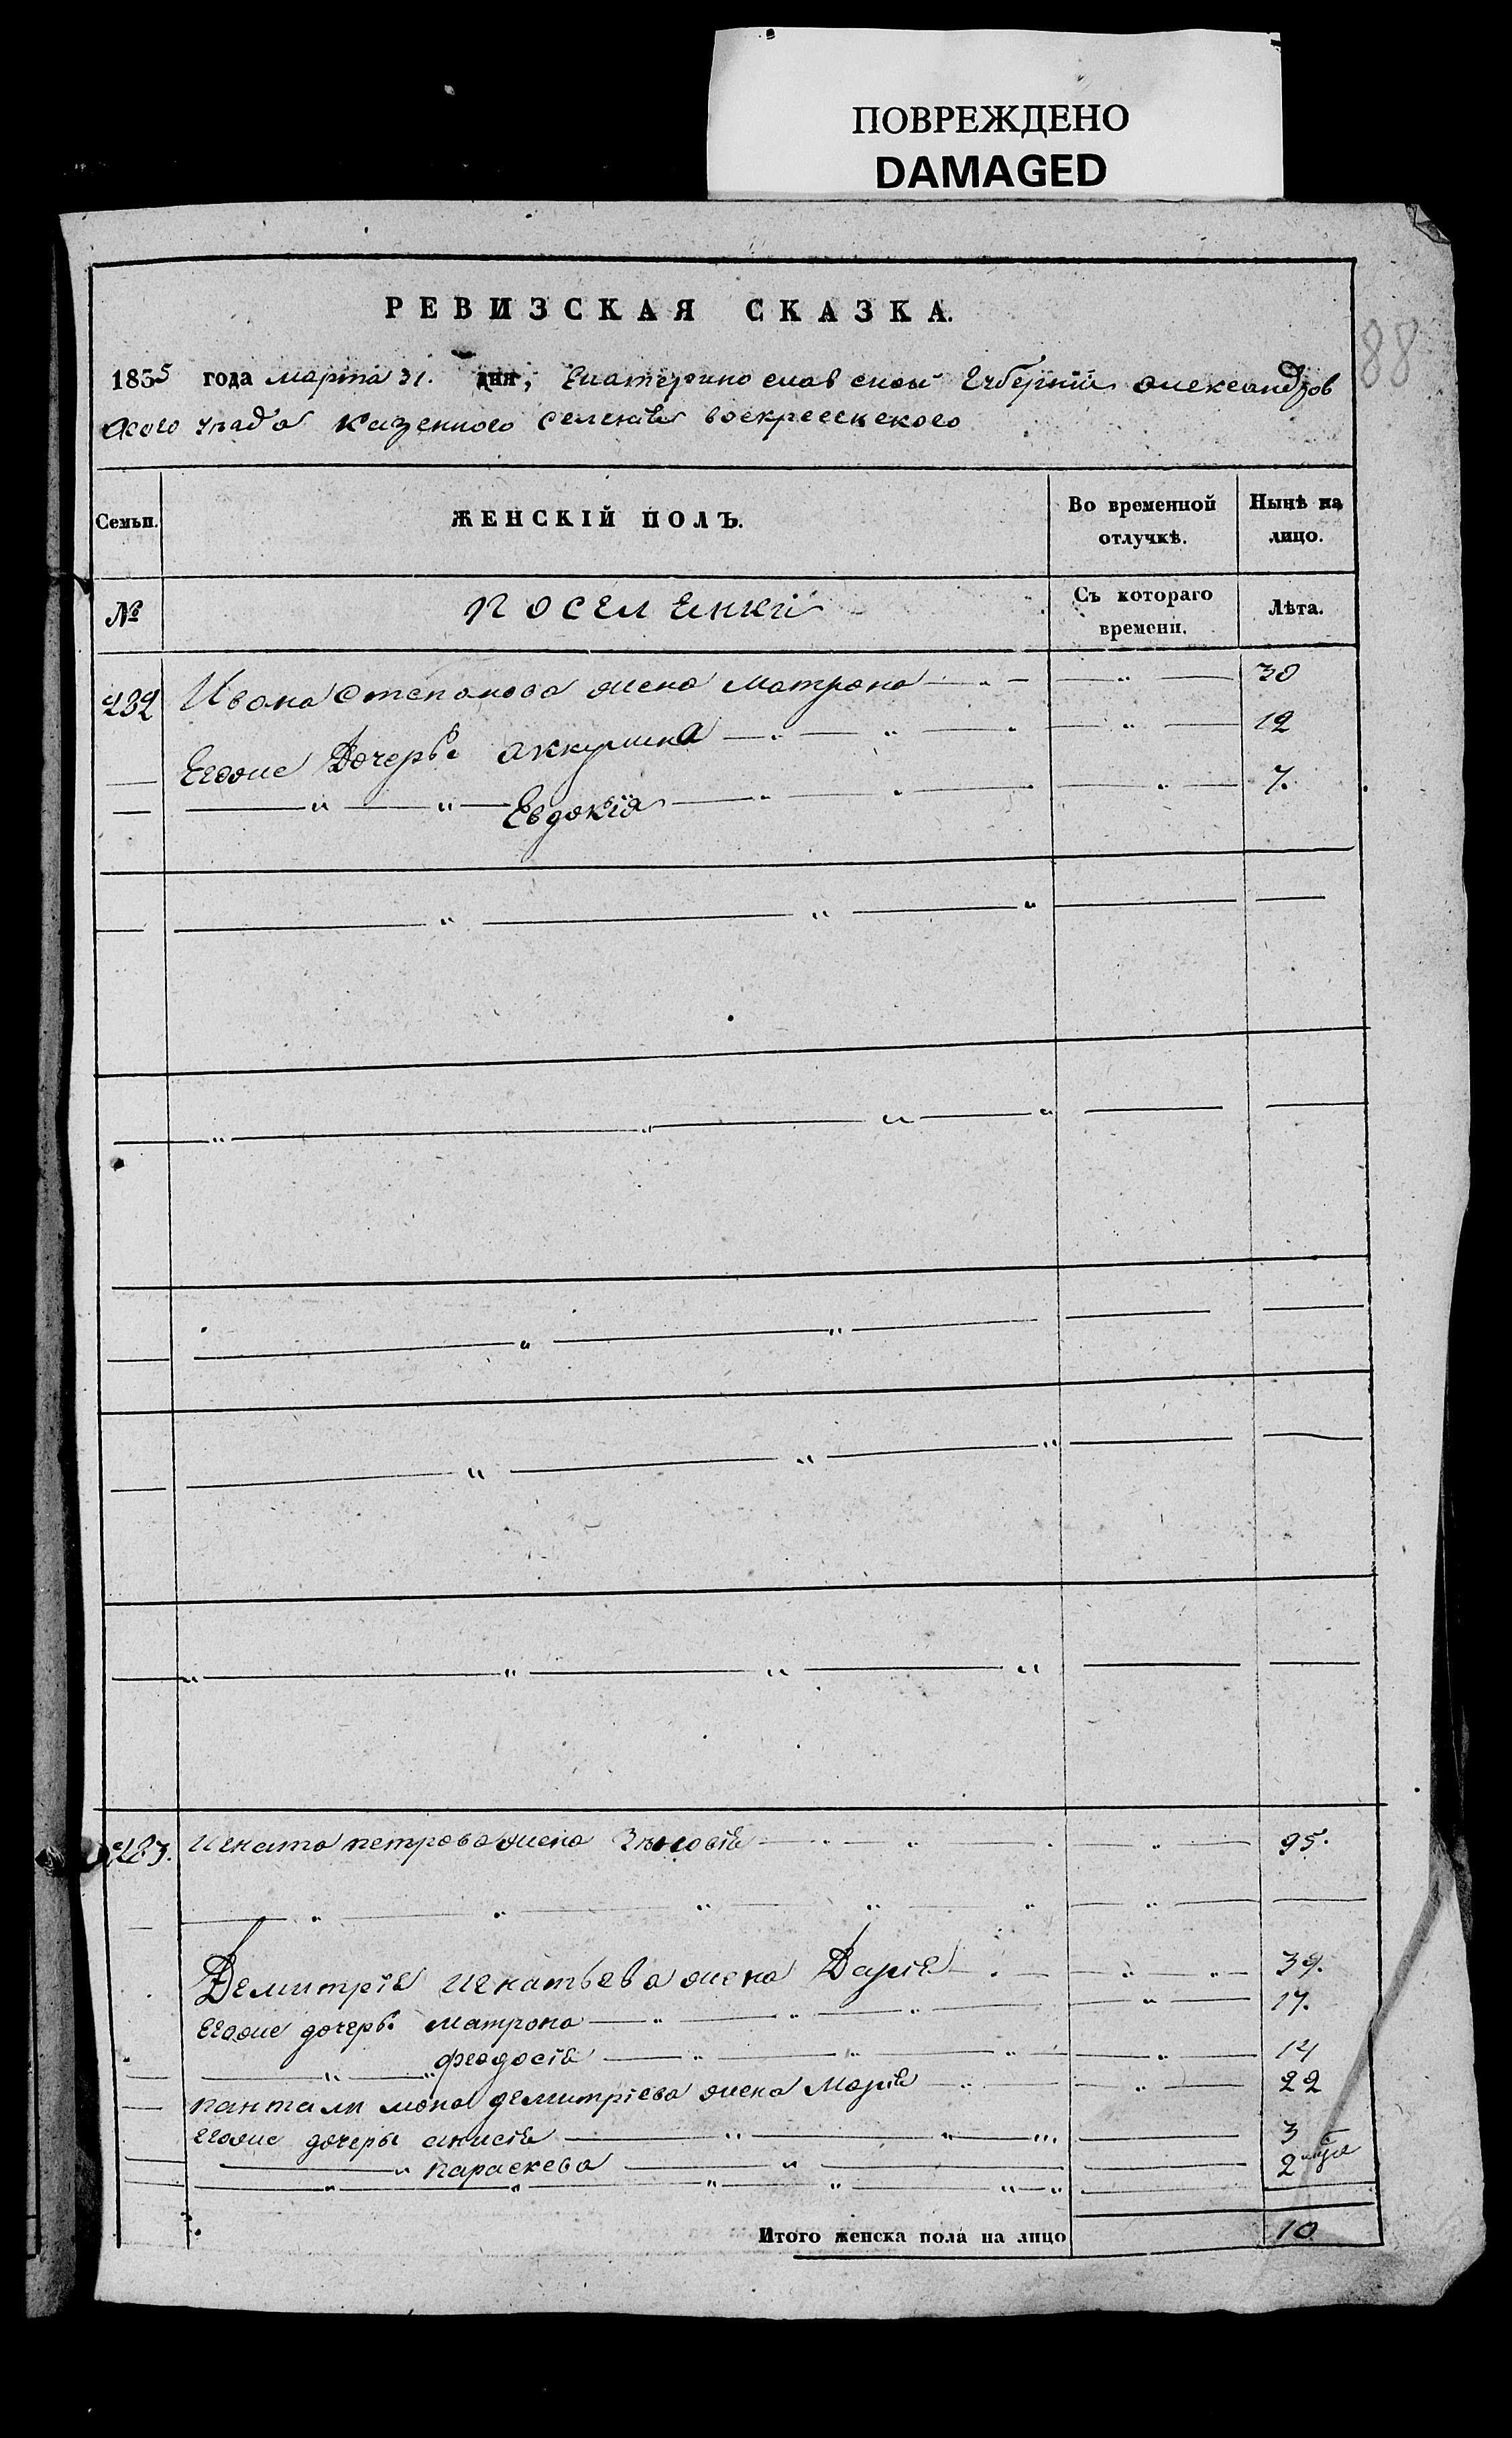 ПОВРЕЖДЕНО
DAMAGED
88
РЕВИЗСКАЯ СКАЗКА.
1835 года марта 31. дня, Екатеринославской Губернїи Александров
ского уезда казенного селенїя воскресенского
Семьи. ЖЕНСКІЙ ПОЛЪ. Во временной отлучкѣ. Нынѣ на лицо.
№ поселенкїи Съ котораго времени. Лѣта.
232 Ивана Степанова жена матрона 30
Егоже Дочери Аккулина 12
" " Евдокїя " 7.
233. Игната петрова жена 95.
Демитрїя игнатьева жена Дарїя 39.
Егоже дочери матрона 17.
" " феодосїя 14
пантелимона демитрїева жена Марїя 22
Егоже дочеры анисїя 3
" параскева 2
Итого женска пола на лицо 10